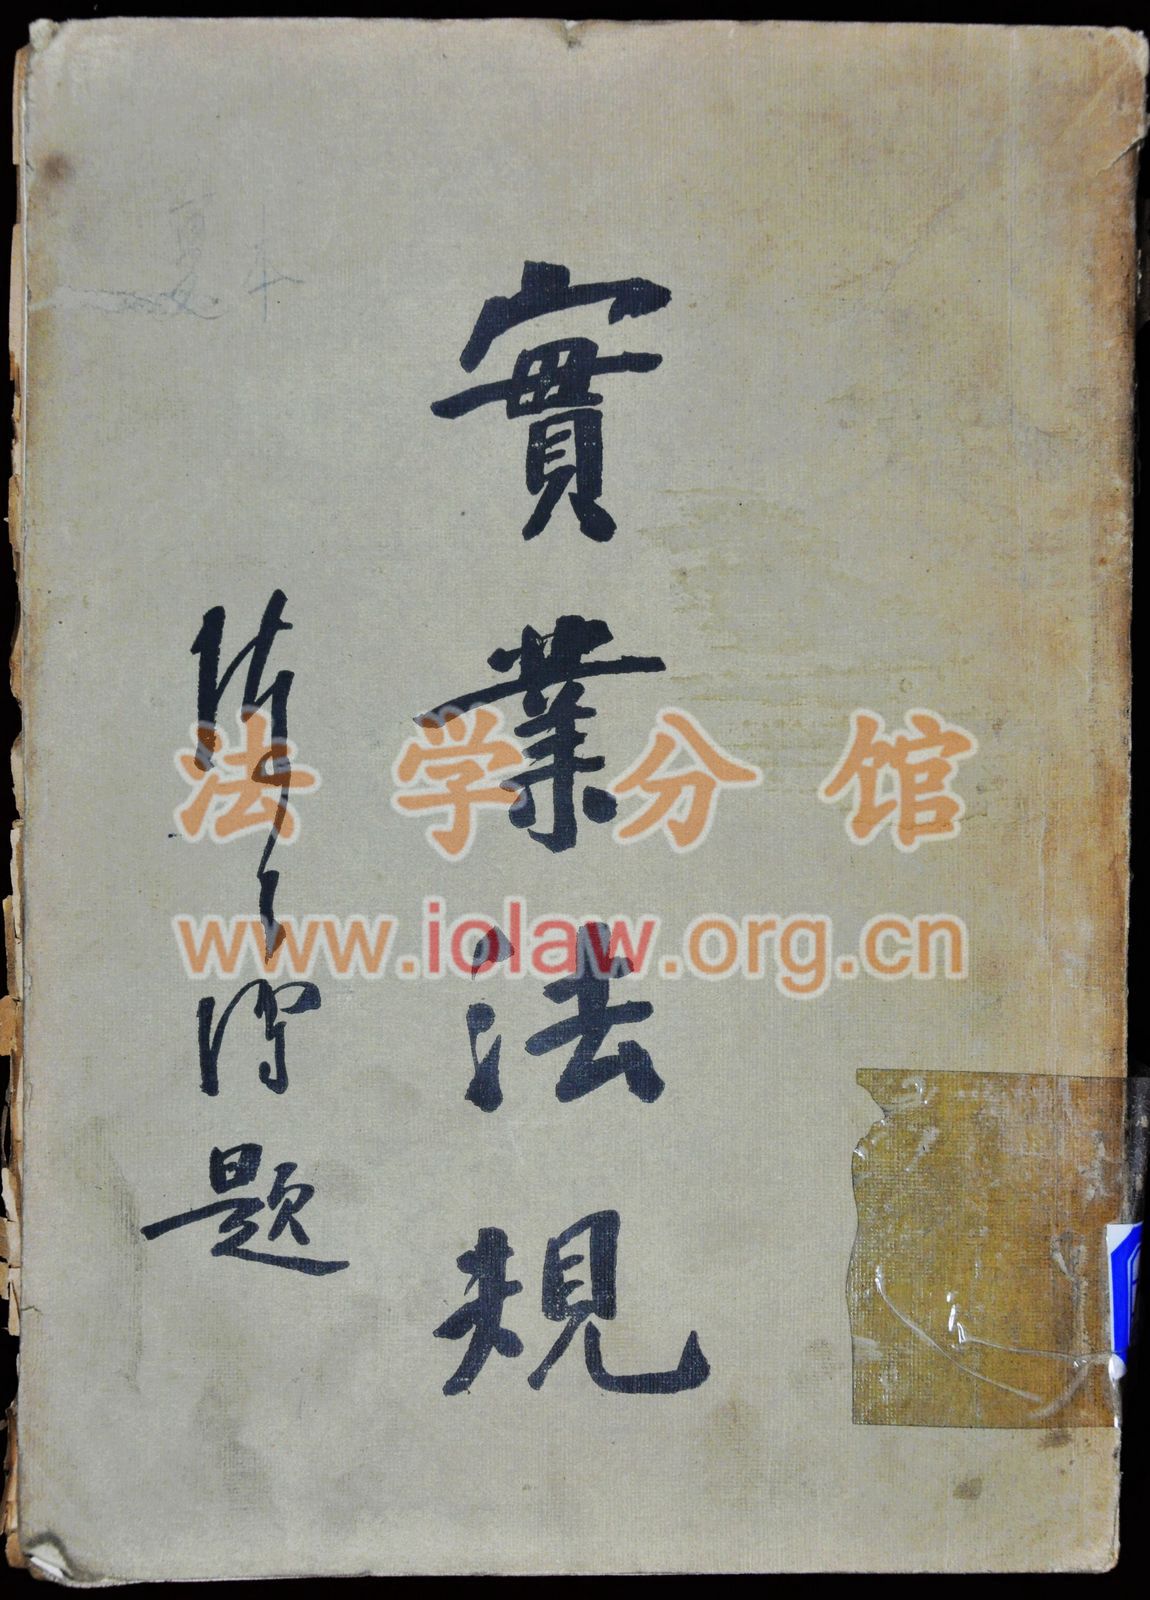 實業法規
陳公博題
法学分馆
www.iolaw.org.cn